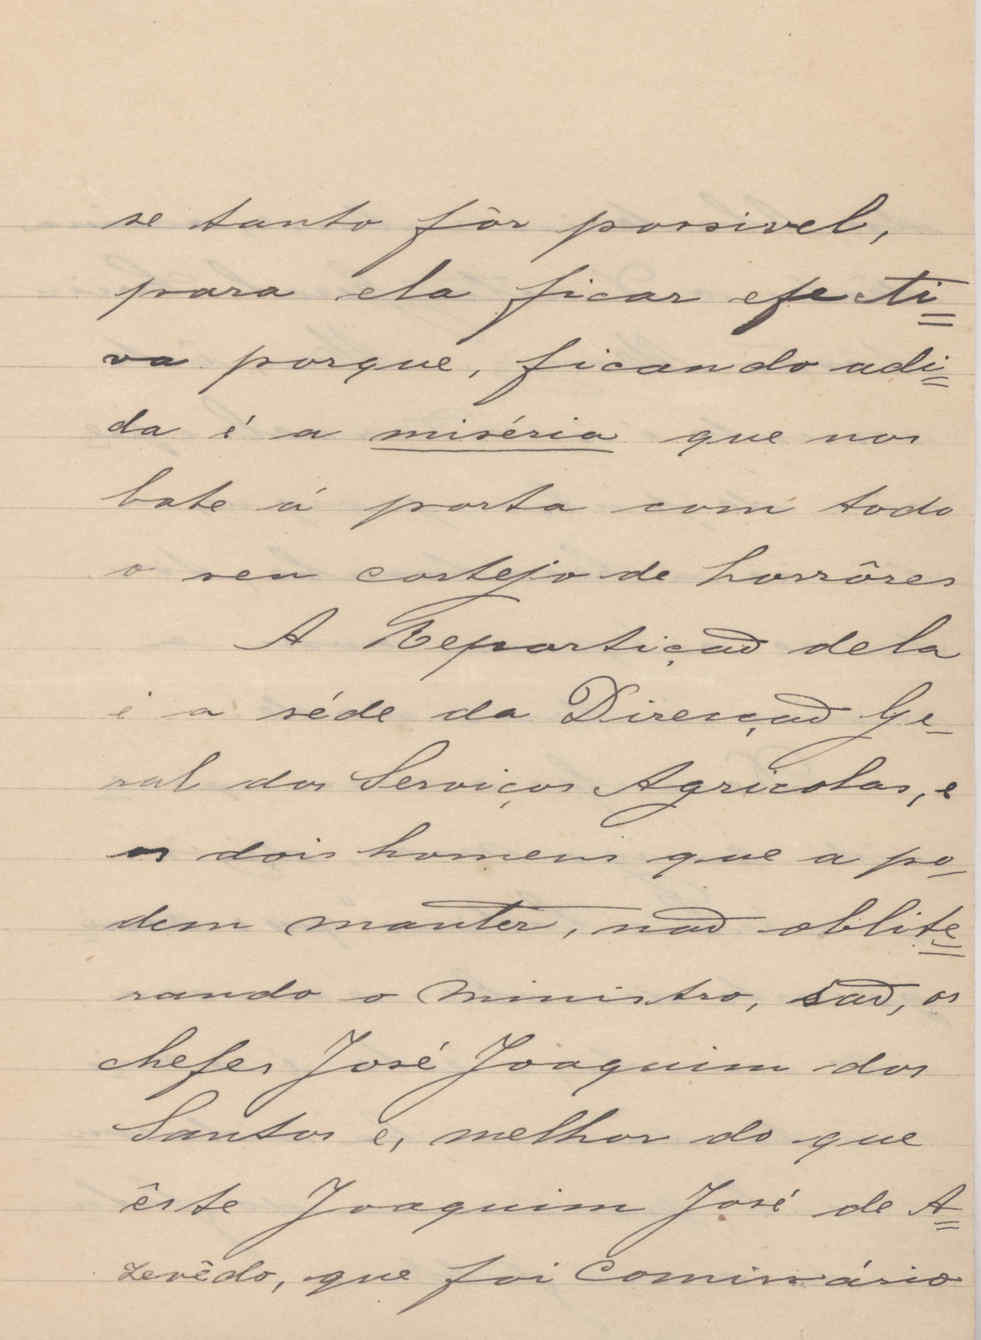 se tanto fôr possivel,
para ela ficar efecti=
va porque, ficando adi=
da é a miséria que nos
bate á porta com todo
o seu cortejo de horrôres
A Repartiçaõ dela
é a séde da Dirençaõ Ge-
ral dos Serviços Agricolas, e
os dois homens que a po-
dem manter, naõ oblite=
rando o ministro, saõ, os
chefes José Joaquim dos
Santos e, melhor do que
êste Joaquim José de A=
zevêdo, que foi Comissário